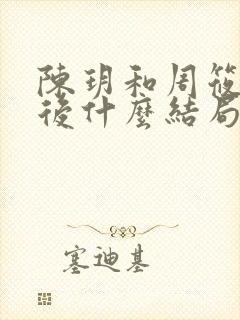 陳玥和周筱
後什麼結局
塞迪基